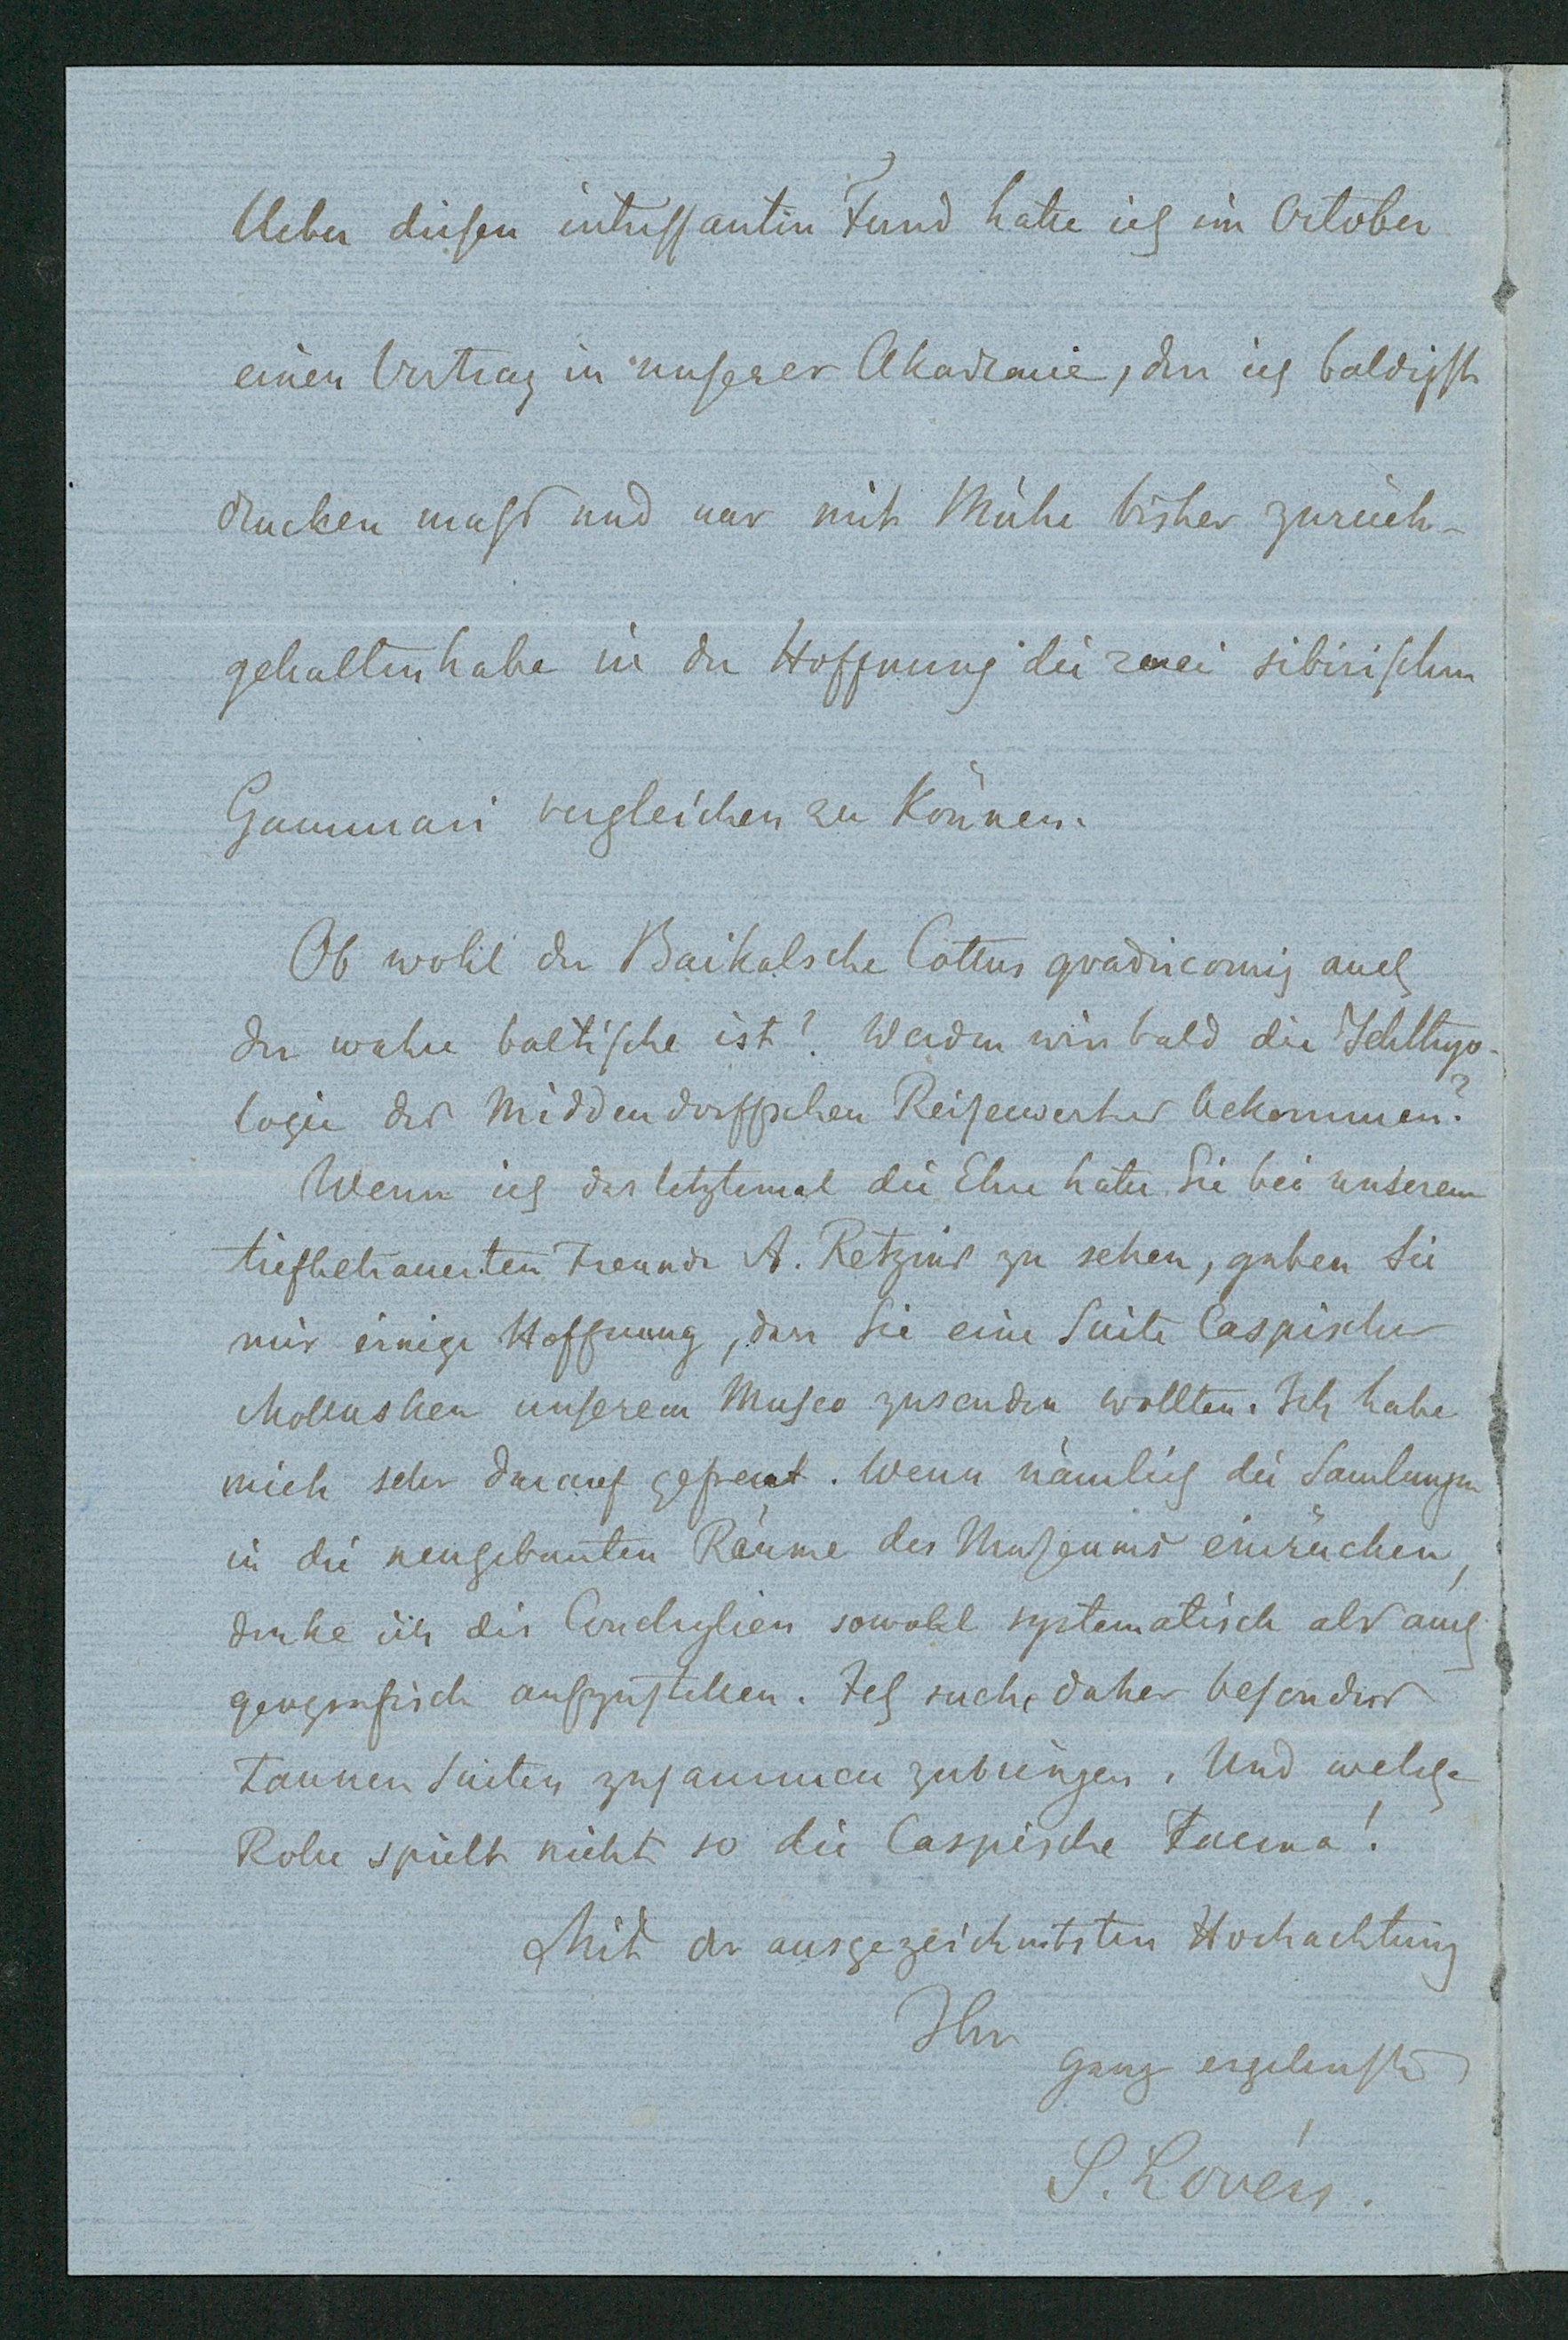 Ueber diesen intressanten Fund hatte ich im October
einen Vortrag in unserer Akademie, den ich baldigst
drucken muss und nur mit Mühe bisher zurück-
gehalten habe in der Hoffnung die zwei sibirischen
Gammari vergleichen zu können.
Ob wohl der Baikalsche Cottus quadricornis auch
der wahre baltische ist? Werden wir bald die Ichthyo-
logie des Middendorffschen Reisewerkes bekommen?
Wenn ich das letztemal die Ehre hatte Sie bei unserem
tiefbetrauerten Freunde A. Retzius zu sehen, gaben Sie
mir einige Hoffnung, dass Sie eine Suite Caspischer
Mollusken unserem Museo zusenden wollten. Ich habe
mich sehr darauf gefreut. Wenn nämlich die Samlungen
in die neugebauten Räume des Museums einrücken,
denke ich die Conchylien sowohl systematisch als auch
geografisch aufzustellen. Ich suche daher besonders
Faunen Suiten zusammen zubringen. Und welche
Rolle spielt nicht so die Caspische Fauna!
Mit der ausgezeichnetsten Hochachtung
Ihr
ganz ergebenster
S. Lovén.